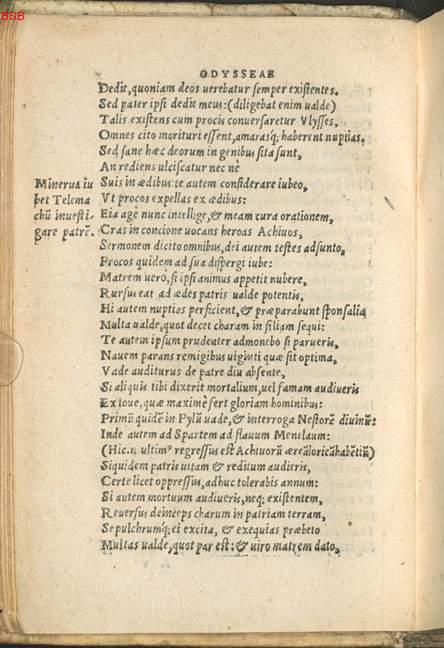 BSB
ODYSSEAE
Dedit, quoniam deos uerebatur semper existentes.
Sed pater ipsi dedit meus: (diligebat enim ualde)
Talis existens cum procis conuersaretur Vlysses,
Omnes cito morituri essent, amarasq; haberent nuptias.
Sed sane hæc deorum in genibus sita sunt,
An rediens ulciscatur nec ne
Minerua iu
bet Telema
chū inuesti-
gare patrē.
Suis in ædibus: te autem considerare iubeo,
Vt procos expellas ex ædibus:
Eia age nunc intellige, & meam cura orationem,
Cras in concione uocans heroas Achiuos,
Sermonem dicito omnibus, dei autem testes adsunto,
Procos quidem ad sua dispergi iube:
Matrem uerò, si ipsi animus appetit nubere,
Rursus eat ad ædes patris ualde potentis,
Hi autem nuptias perficient, & præparabunt sponsalia
Multa ualde, quot decet charam in filiam sequi:
Te autem ipsum prudenter admonebo si parueris,
Nauem parans remigibus uiginti quæ sit optima,
Vade auditurus de patre diu absente,
Si aliquis tibi dixerit mortalium, uel famam audiueris
Ex Ioue, quæ maximè fert gloriam hominibus:
Primū quidē in Pylū uade, & interroga Nestorē diuinū:
Inde autem ad Spartem ad flauum Menelaum:
(Hic.n. ultimꝰ regressus est Achiuorū æreāloricūhabētiū)
Siquidem patris uitam & reditum audieris,
Certe licet oppressus, adhuc tolerabis annum:
Si autem mortuum audiueris, neq; existentem,
Reuersus deinceps charum in patriam terram,
Sepulchrumq; ei excita, & exequias præbeto
Multas ualde, quot par est: & uiro matrem dato,